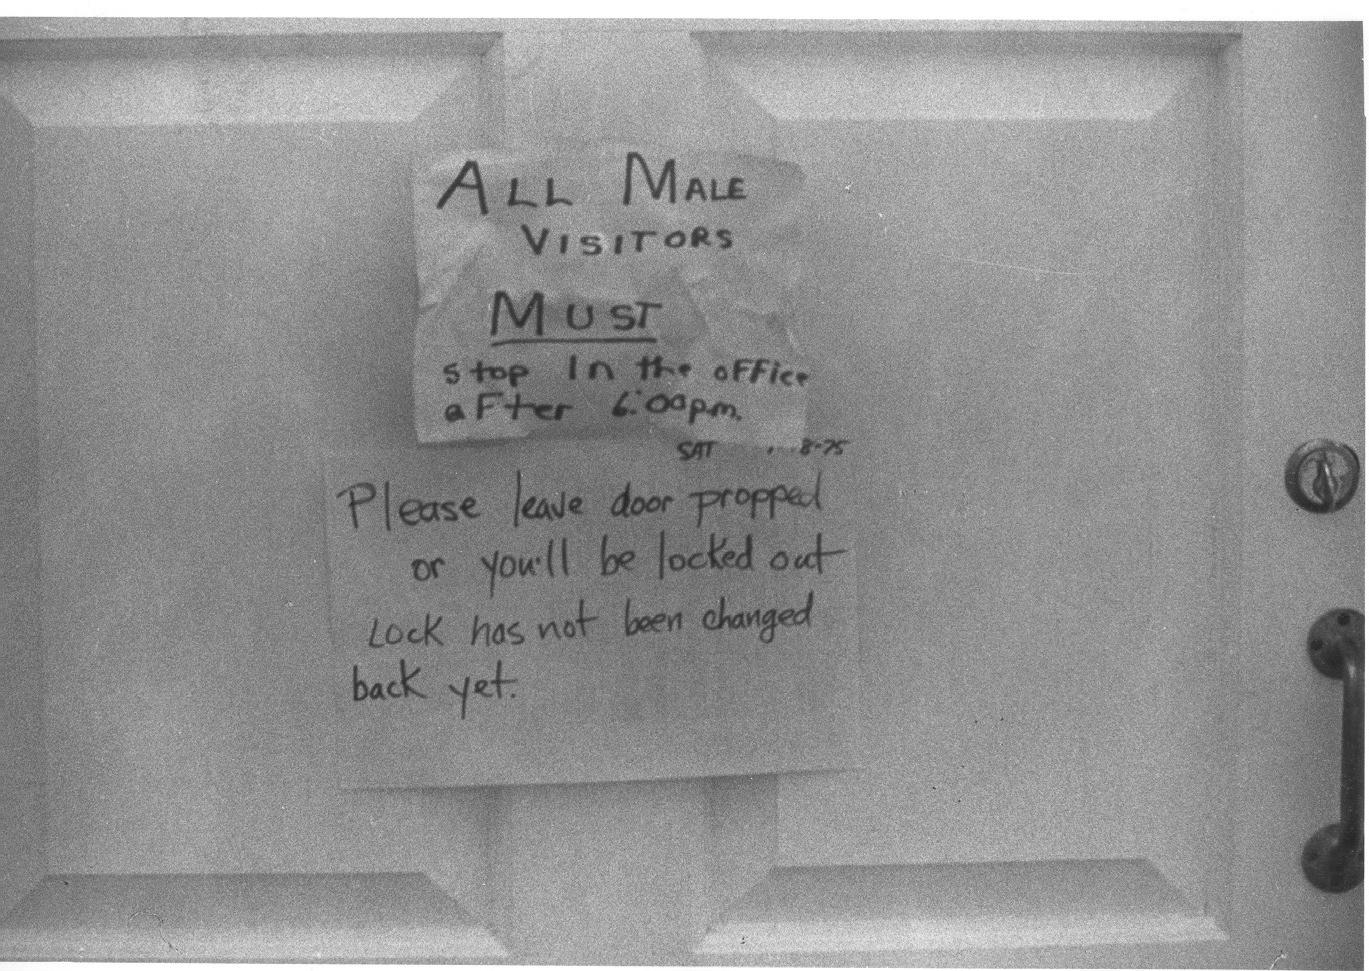 ALL MALE
VISITORS
MUST
stop In the office
after 6:00pm.
SAT 8-75
Please leave door propped
or you'll be locked out
Lock has not been changed
back yet.